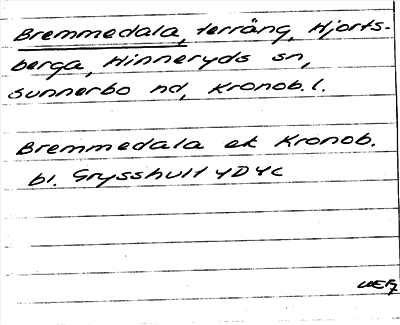 Bremmedala, terräng, Hjorts-
berga, Hinneryds sn,
Sunnerbo hd, Kronob. l.
Bremmedala ek Kronob.
bl. Grysshult 4D4c